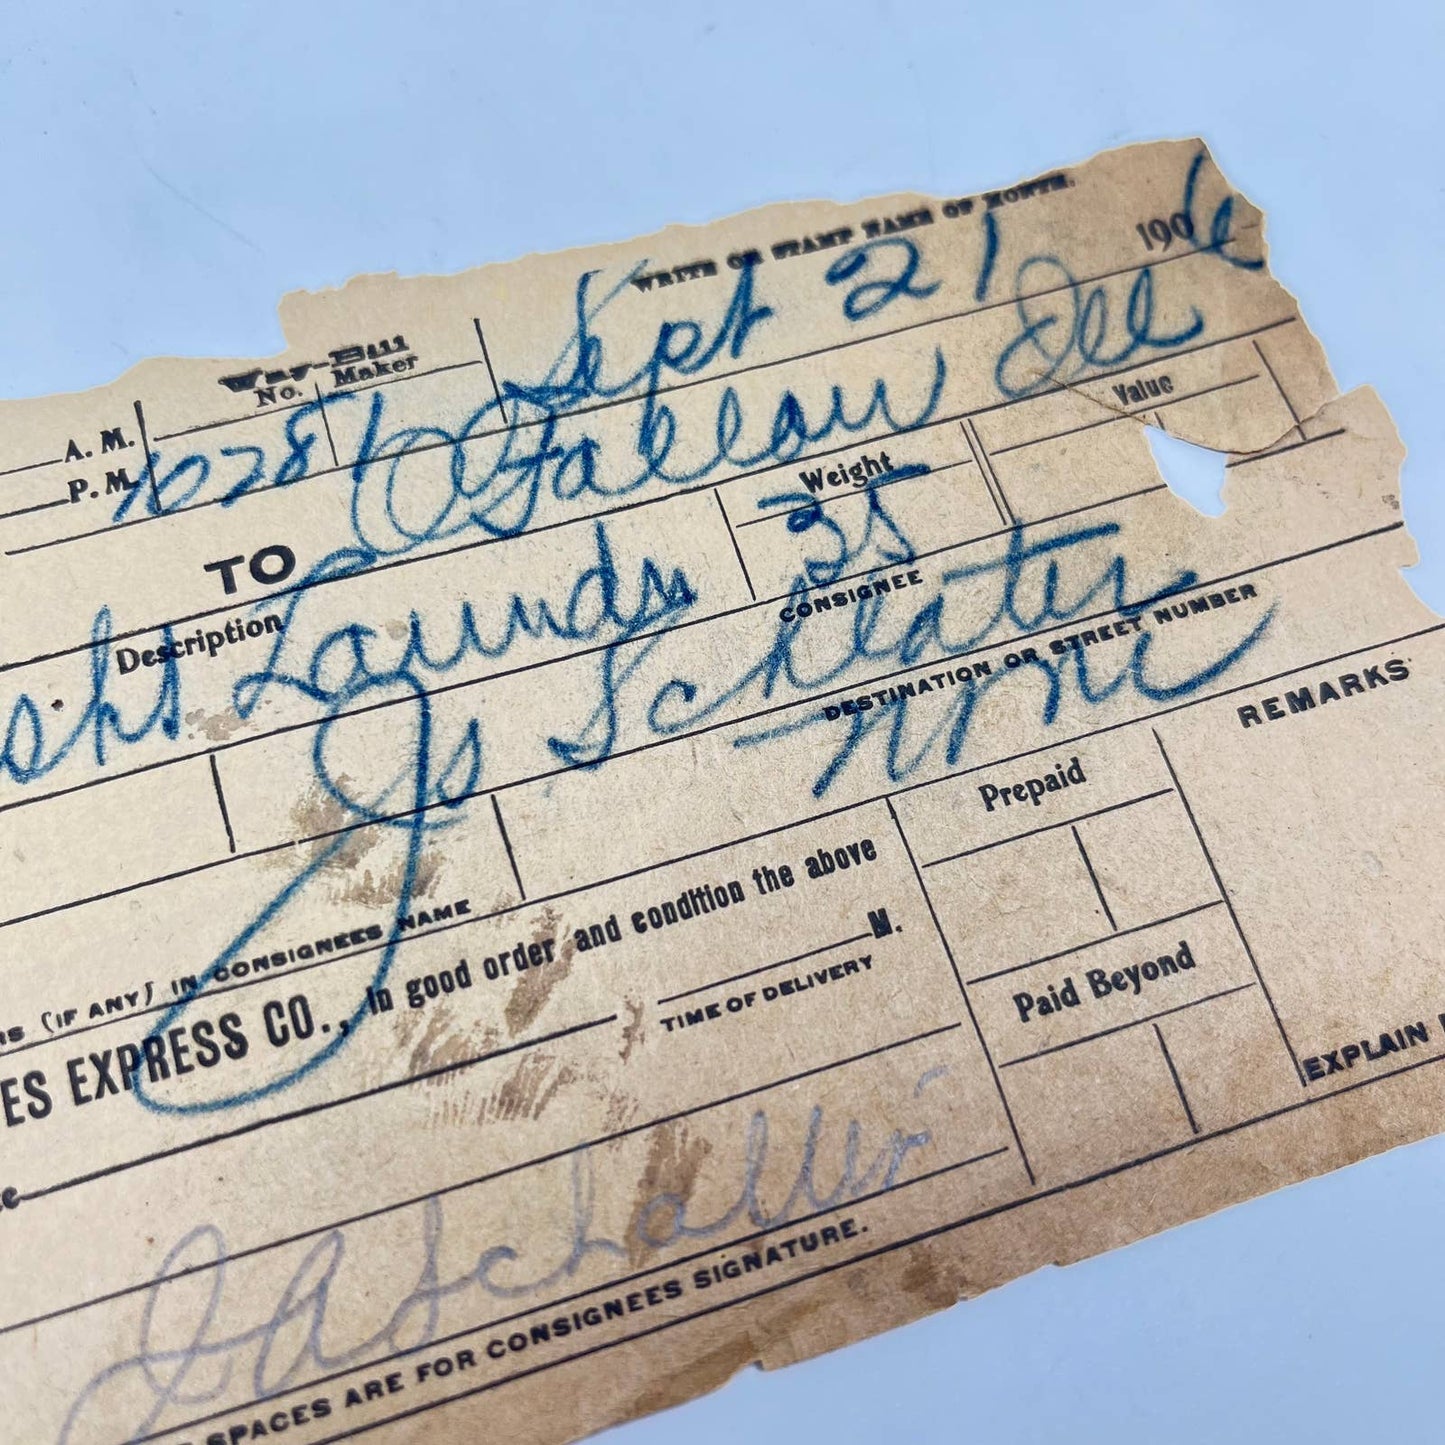 WRITE OR STAMP NAME OF MONTH.
Sept 21 1906
Way-Bill
No. Maker
A. M.
P. M.
O'Fallow Ill
TO
Weight Value
35
Description
Laundry
CONSIGNEE
Js Schlater
DESTINATION OR STREET NUMBER
REMARKS
Prepaid
RS (IF ANY) IN CONSIGNEES NAME
ES EXPRESS CO., in good order and condition the above
M.
TIME OF DELIVERY
Paid Beyond
EXPLAIN
Schaller
SPACES ARE FOR CONSIGNEES SIGNATURE.